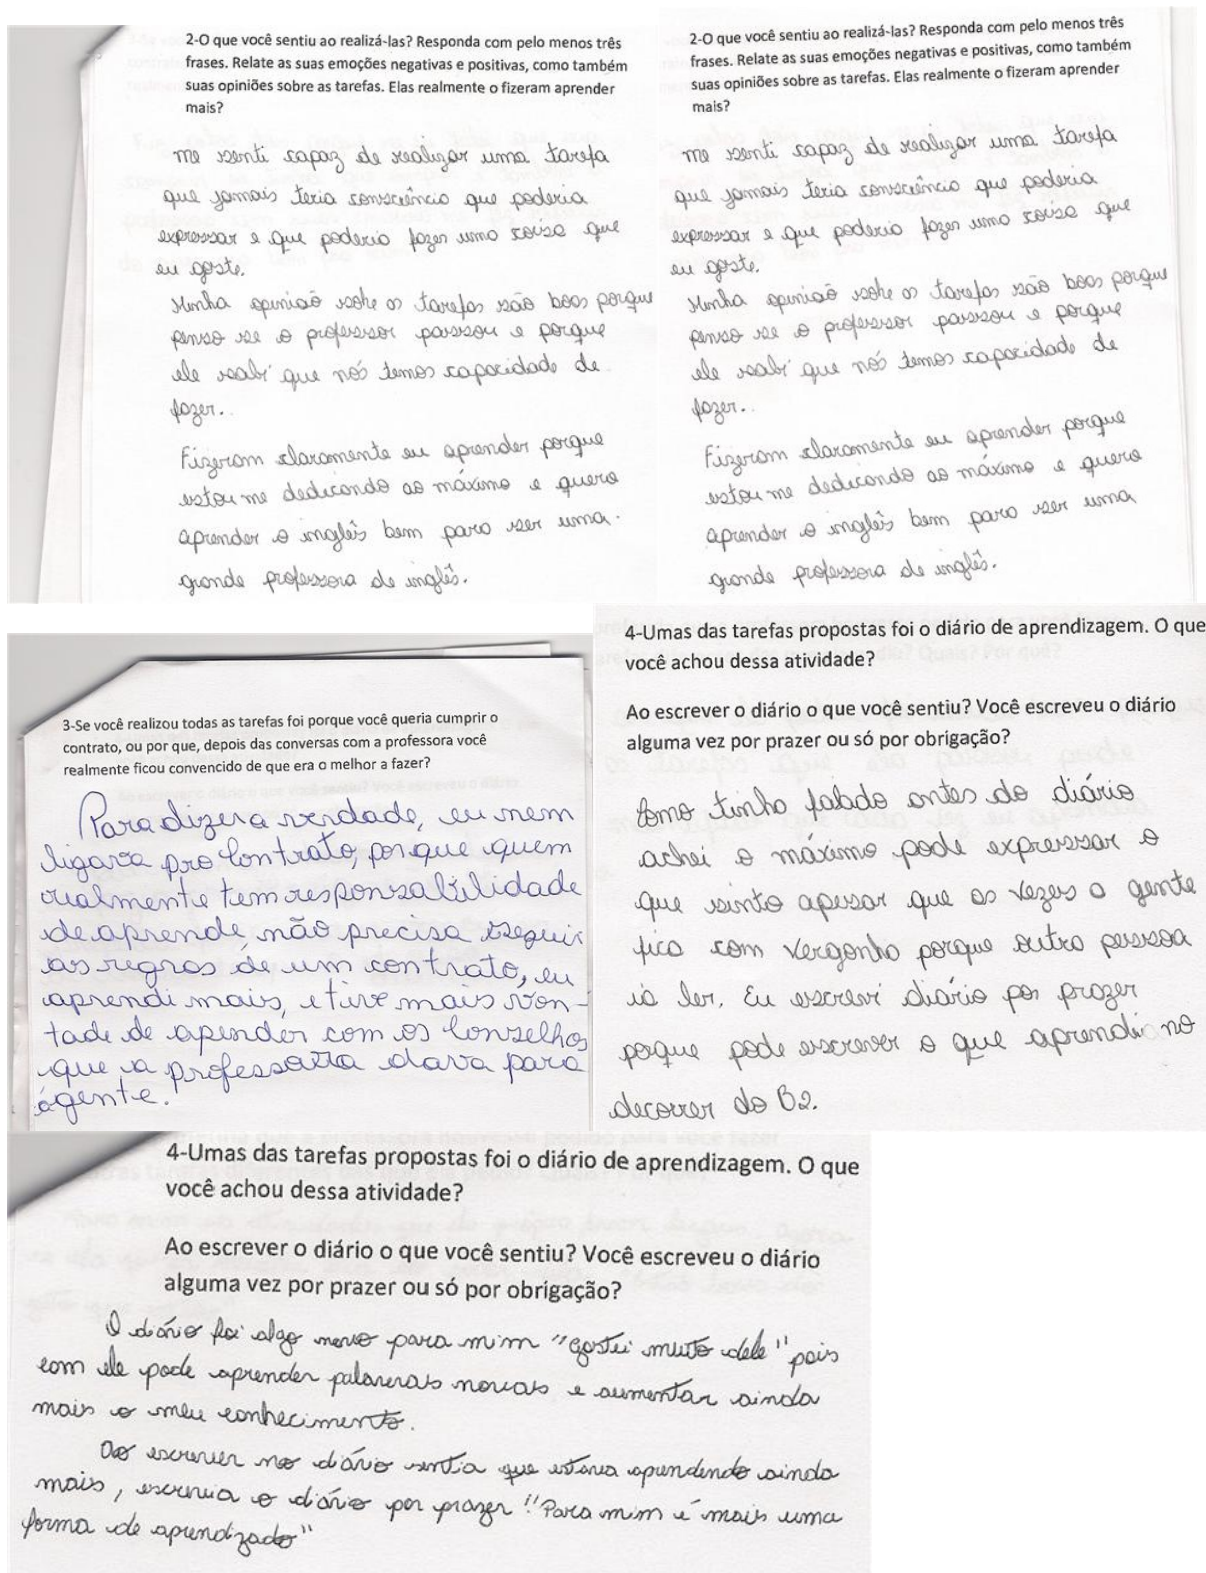 2-O que você sentiu ao realizá-las? Responda com pelo menos três
frases. Relate as suas emoções negativas e positivas, como também
suas opiniões sobre as tarefas. Elas realmente o fizeram aprender
mais?
me senti capaz de realizar uma tarefa
que jamais teria consciência que poderia
expressar e que poderia fazer uma coisa que
eu goste.
Minha opiniaõ sobre as tarefas são boas porque
penso se o professor passou e porque
ele sabi que nós temos capacidade de
fazer.
Fizeram claramente eu aprender porque
estou me dedicando ao máximo e quero
aprender o inglês bem para ser uma
grande professora de inglês.
2-O que você sentiu ao realizá-las? Responda com pelo menos três
frases. Relate as suas emoções negativas e positivas, como também
suas opiniões sobre as tarefas. Elas realmente o fizeram aprender
mais?
me senti capaz de realizar uma tarefa
que jamais teria consciência que poderia
expressar e que poderia fazer uma coisa que
eu goste.
Minha opiniaõ sobre as tarefas são boas porque
penso se o professor passou e porque
ele sabi que nós temos capacidade de
fazer.
Fizeram claramente eu aprender porque
estou me dedicando ao máximo e quero
aprender o inglês bem para ser uma
grande professora de inglês.
3-Se você realizou todas as tarefas foi porque você queria cumprir o
contrato, ou por que, depois das conversas com a professora você
realmente ficou convencido de que era o melhor a fazer?
Para dizer a verdade, eu nem
ligava pro Contrato, porque quem
realmente tem responsabilidade
de aprende não precisa seguir
as regras de um contrato, eu
aprendi mais, e tive mais von-
tade de apender com os Conselhos
que a professora dava para
agente.
4-Umas das tarefas propostas foi o diário de aprendizagem. O que
você achou dessa atividade?
Ao escrever o diário o que você sentiu? Você escreveu o diário
alguma vez por prazer ou só por obrigação?
Como tinha falado antes do diário
achei o máximo pode expressar o
que sinto apesar que as vezes a gente
fica com vergonha porque outra pessoa
ia ler. Eu escrevi diário por prazer
porque pode escrever o que aprendi no
decorrer do B2.
4-Umas das tarefas propostas foi o diário de aprendizagem. O que
você achou dessa atividade?
Ao escrever o diário o que você sentiu? Você escreveu o diário
alguma vez por prazer ou só por obrigação?
O diário foi algo novo para mim "gostei muito dele" pois
com ele pode aprender palavras novas e aumentar ainda
mais o meu conhecimento.
Ao escrever no diário sentia que estava aprendendo ainda
mais, escrevia o diário por prazer "Para mim é mais uma
forma de aprendizado"